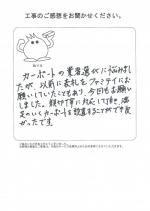 工事のご感想をお聞かせください。
カーポートの業者選びに悩みまし
たが、以前に表札をファミテイにお
願いしていたこともあり、今回もお願い
しました。親切丁寧に対応して頂き、満
足のいくカーポートを設置することができて良
かったです。